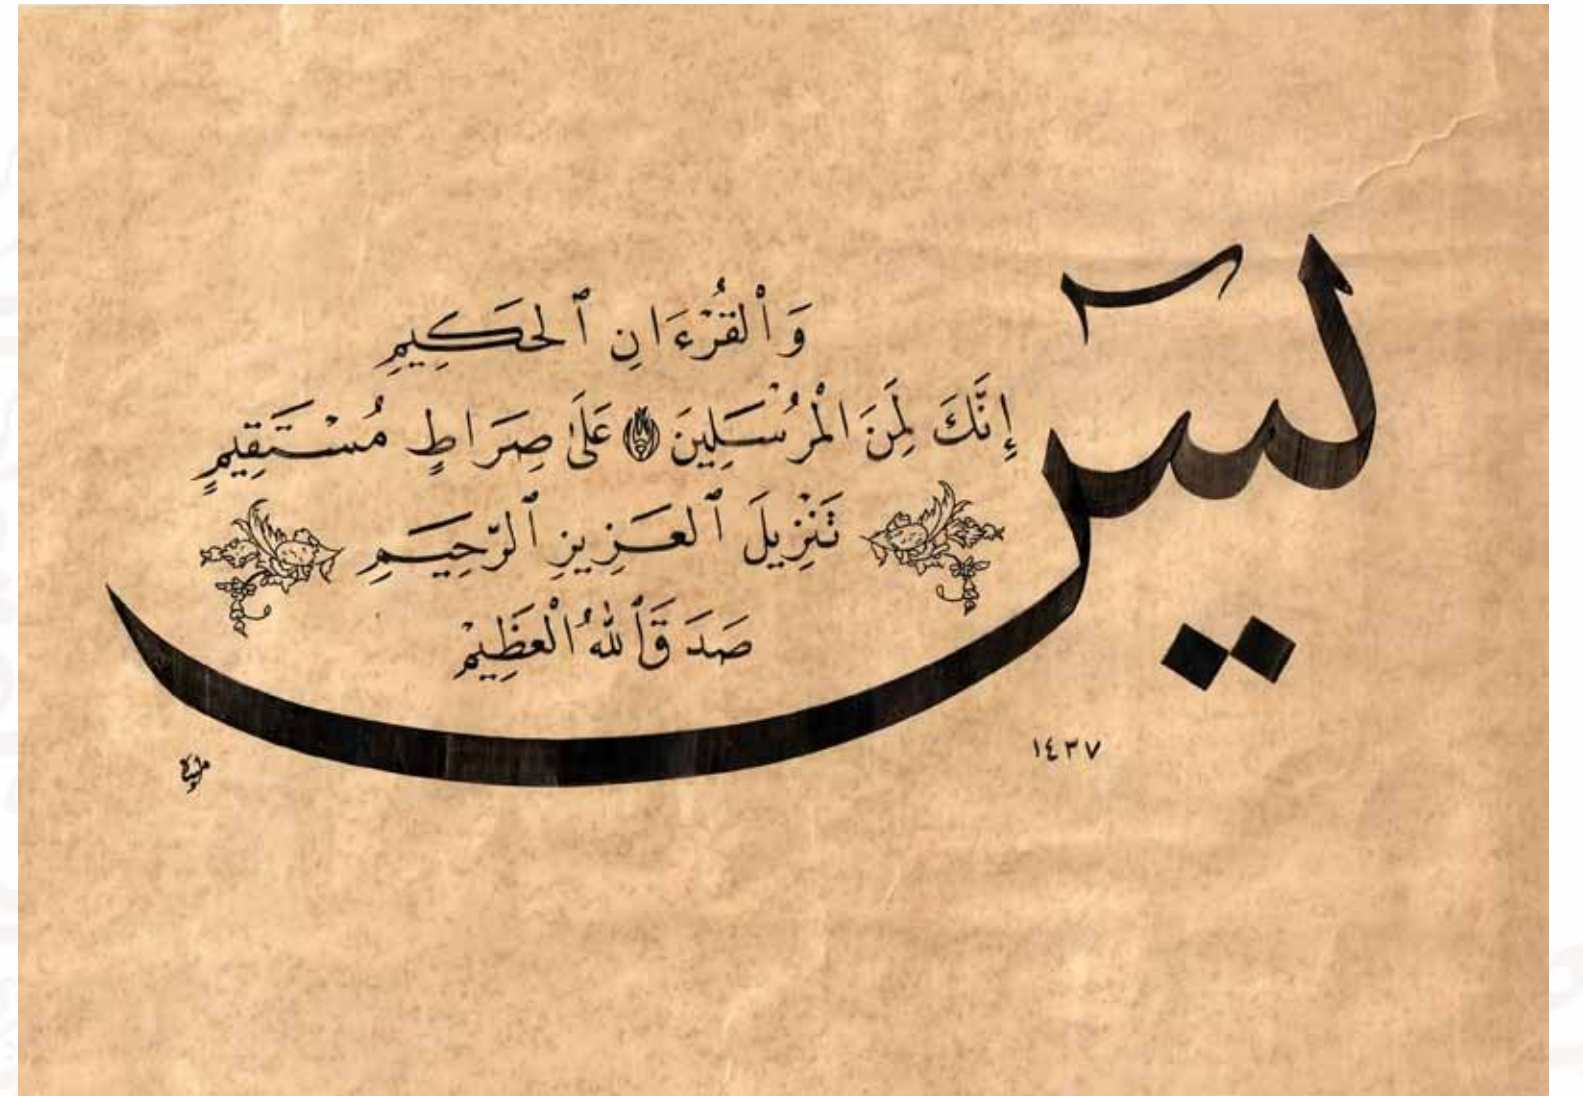 يسٓ
وَالْقُرْءَانِ ٱلحَكِيمِ
إِنَّكَ لَمِنَ الْمُرْسَلِينَ عَلَىٰ صِرَاطٍ مُسْتَقِيمٍ
تَنْزِيلَ ٱلعَزِيزِ ٱلرَّحِيمِ
صَدَقَ ٱللهُ الْعَظِيمْ
١٤٣٧